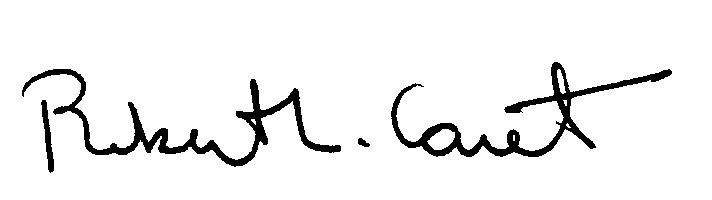 Robert L. Caret